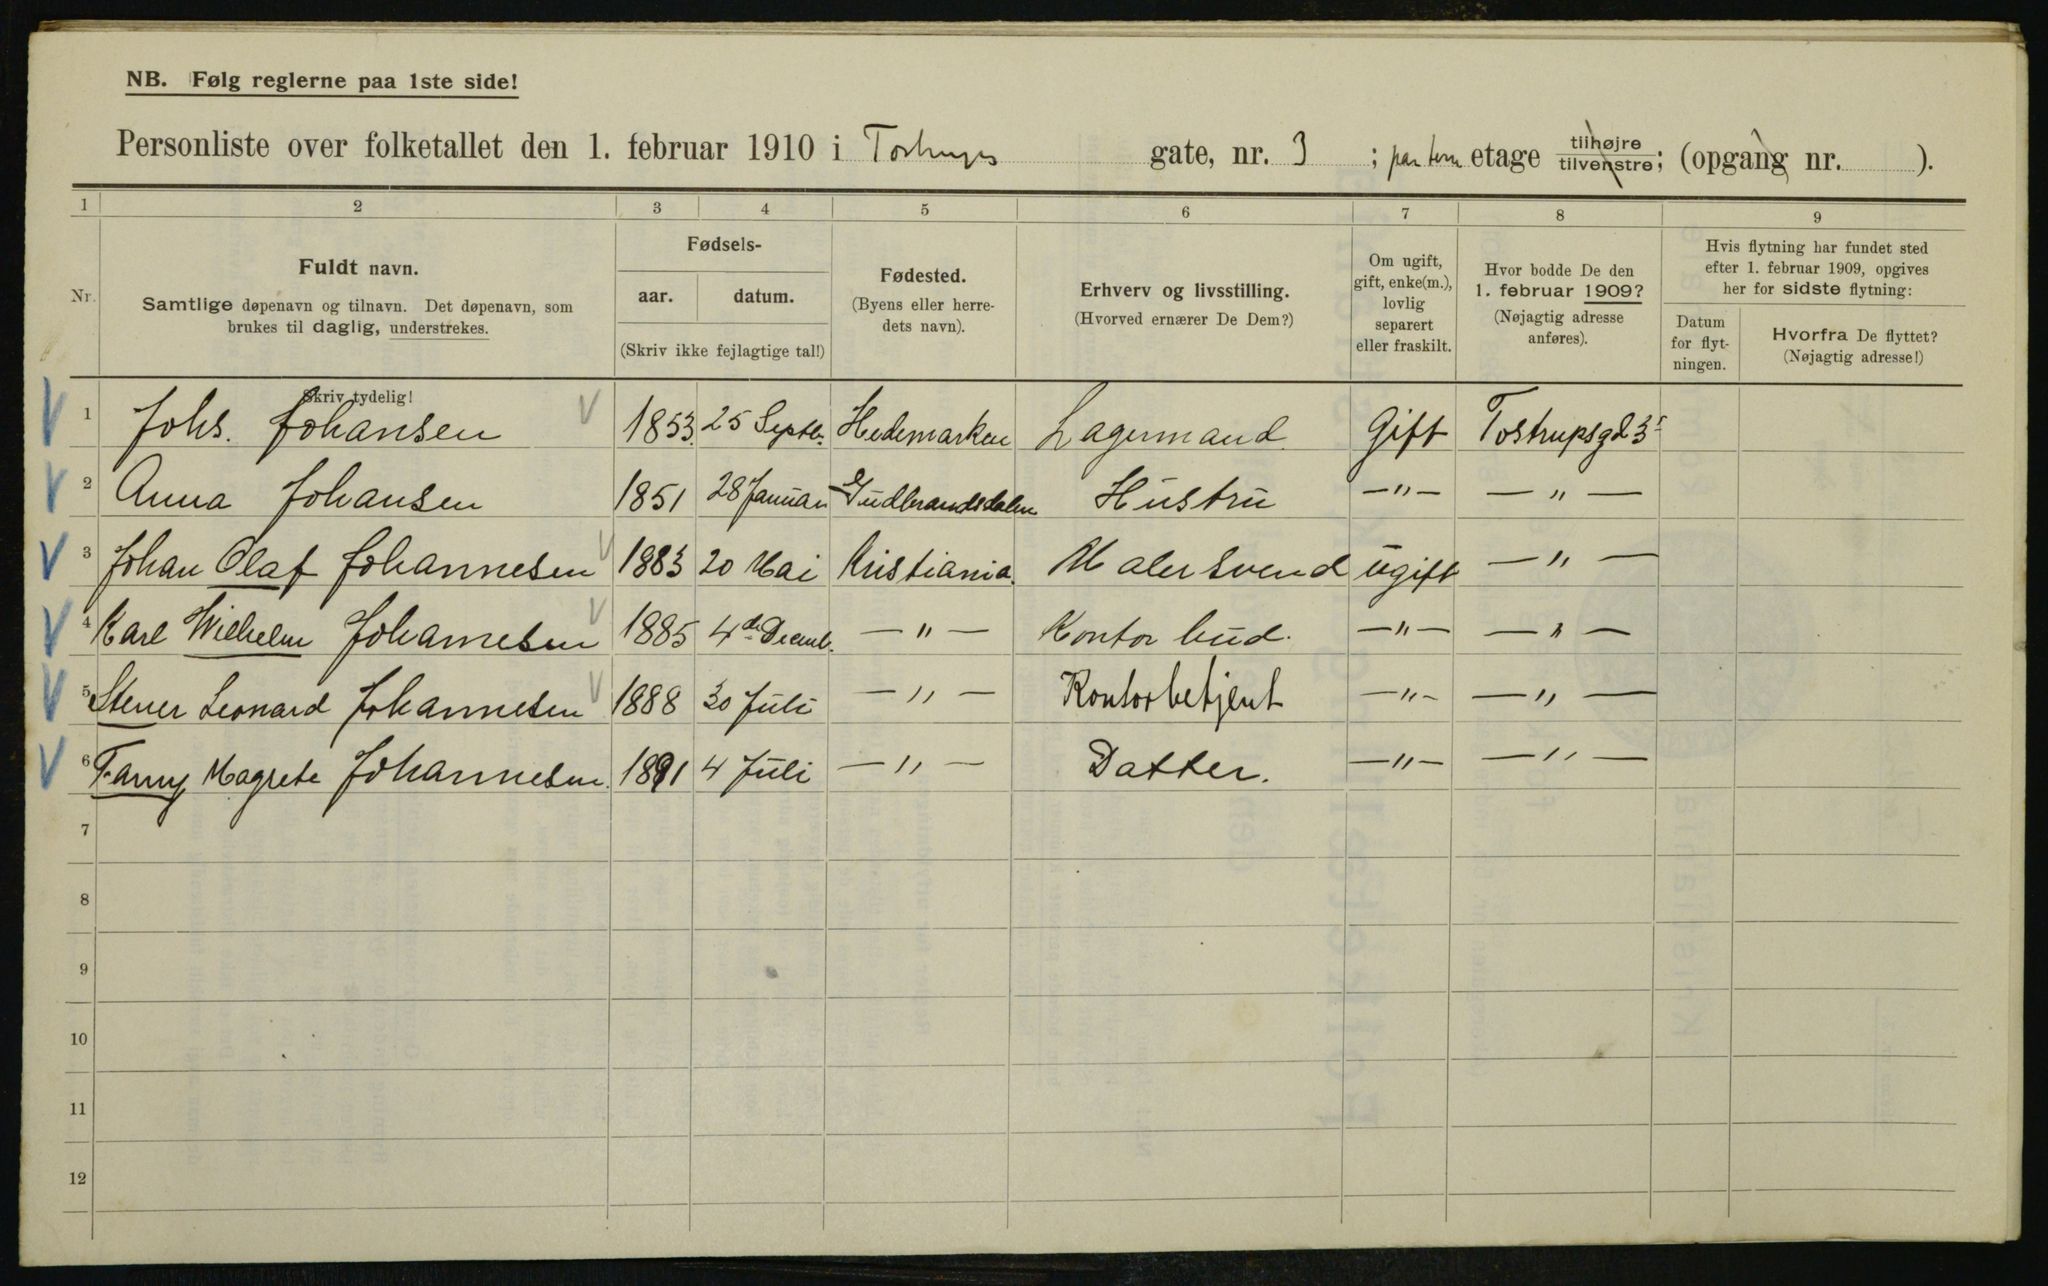 NB. Følg reglerne paa 1ste side!
Personliste over folketallet den 1. februar 1910 i Tostrups gate, nr. 3 ; parterre etage tilhøjre tilvenstre; (opgang nr. ).
1 2 3 4 5 6 7 8 9
Nr. Fuldt navn. Samtlige døpenavn og tilnavn. Det døpenavn, som brukes til daglig, understrekes.
Fødsels- aar. datum. (Skriv ikke fejlagtige tal!)
Fødested. (Byens eller herredets navn).
Erhverv og livsstilling. (Hvorved ernærer De Dem?)
Om ugift, gift, enke(m.), lovlig separert eller fraskilt.
Hvor bodde De den 1. februar 1909? (Nøjagtig adresse anføres).
Hvis flytning har fundet sted efter 1. februar 1909, opgives her for sidste flytning:
Datum for flytningen. Hvorfra De flyttet? (Nøjagtig adresse!)
Skriv tydelig!
1 Johs. Johansen 1853. 25 Septbr. Hedemarken Lagermand. Gift Tostrupsgd 3
2 Anna Johansen 1851 28 Januar Gudbrandsdalen Hustru —"— —"—
3 Johan Olaf Johannesen 1883 20 Mai Kristiania. Malersvend ugift —"—
4 Karl Wilhelm Johannesen 1885 4de Decemb. —"— Kontorbud. —"— —"—
5 Stener Leonard Johannesen 1888 30 Juli —"— Kontorbetjent —"— —"—
6 Fanny Magrete Johannesen. 1891 4 Juli —"— Datter. —"— —"—
7
8
9
10
11
12